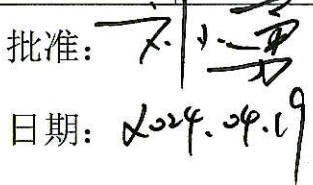 批准：刘小勇
日期：2024.04.19